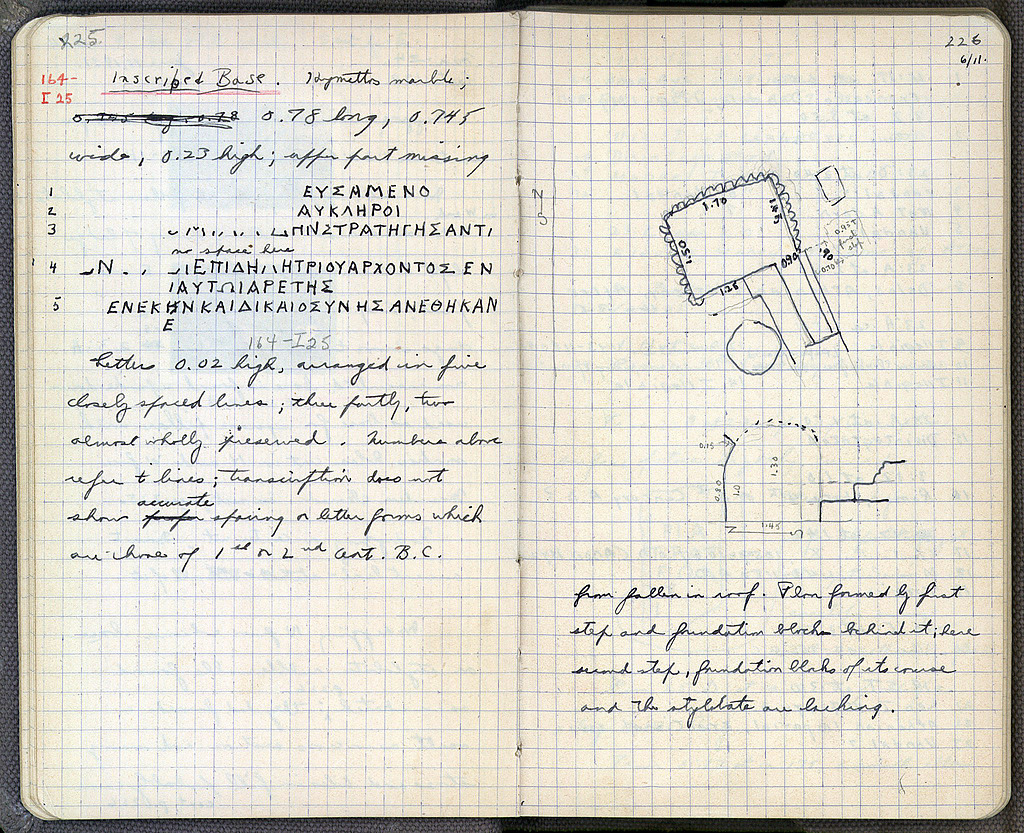 225.
164-
I 25
Inscribed Base. Hymettos marble;
0.78 long, 0.745
wide, 0.23 high; upper part missing
1 ΕΥΣΑΜΕΝΟ
2 ΑΥΚΛΗΡΟΙ
3 ΗΝΣΤΡΑΤΗΓΗΣΑΝΤΙ
no space here
4 Ν . . ΙΕΠΙΔΗΜΗΤΡΙΟΥΑΡΧΟΝΤΟΣΕΝ
ΙΑΥΤΩΙΑΡΕΤΗΣ
5 ΕΝΕΚΗΝΚΑΙΔΙΚΑΙΟΣΥΝΗΣΑΝΕΘΗΚΑΝ
Ε
164-I25
Letters 0.02 high, arranged in five
closely spaced lines; three partly, two
almost wholly preserved. Numbers above
refer to lines; transcription does not
accurate
show spacing or letter forms which
are those of 1st or 2nd cent. B.C.
226
6/11.
N
S
1.70
1.45
1.50
1.25
0.90
.90
0.15
0.80
1.0
1.30
N 1.45 S
from fallen in roof. Plan formed by first
step and foundation blocks behind it; here
second step, foundation blocks of its course
and the stylobate are lacking.